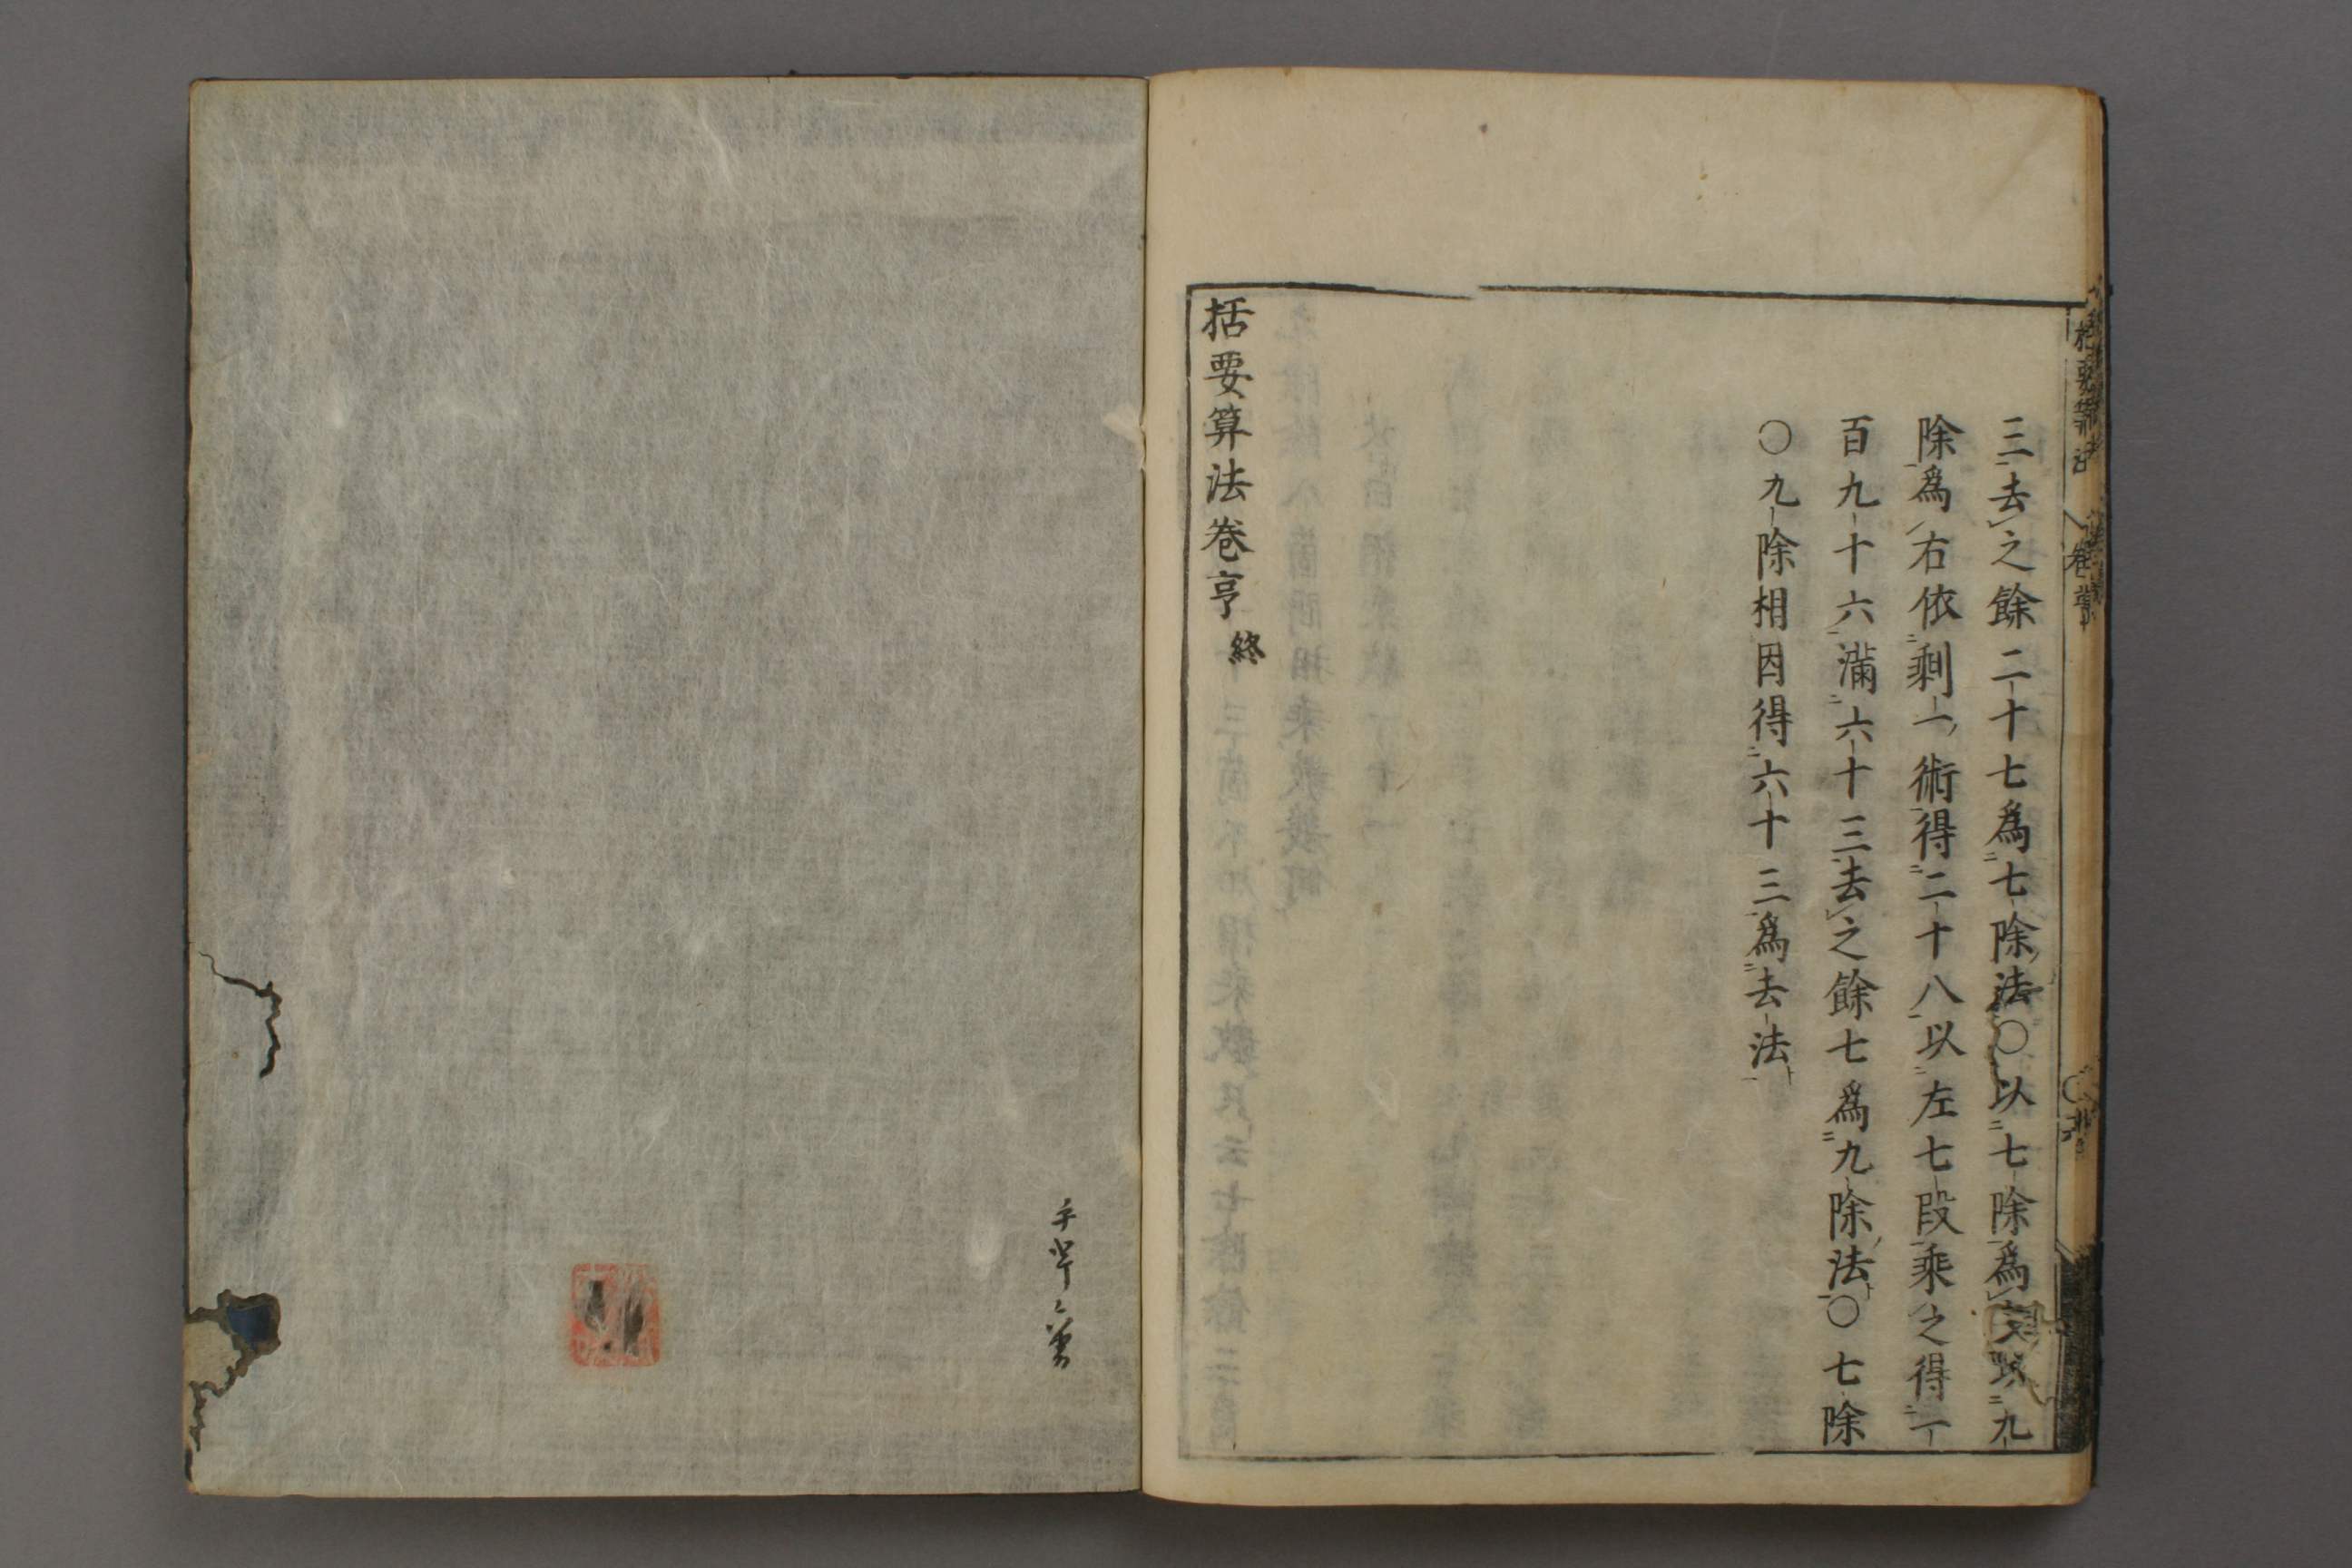 三去之餘二十七爲七除法○以七除爲左以九
除爲右依剰一術得二十八以左七段乘之得一
百九十六滿六十三去之餘七爲九除法○七除
○九除相因得六十三爲去法
括要算法卷亨 終